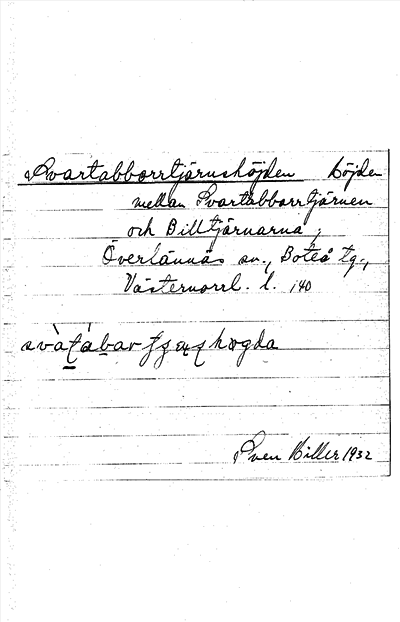 Svartabborrtjärnshöjden höjden
mellan Svartabborrtjärnen
och Billtjärnarna,
Överlännäs sn., Boteå tg.,
Västernorrl. l. 140
Sven Hiller 1932